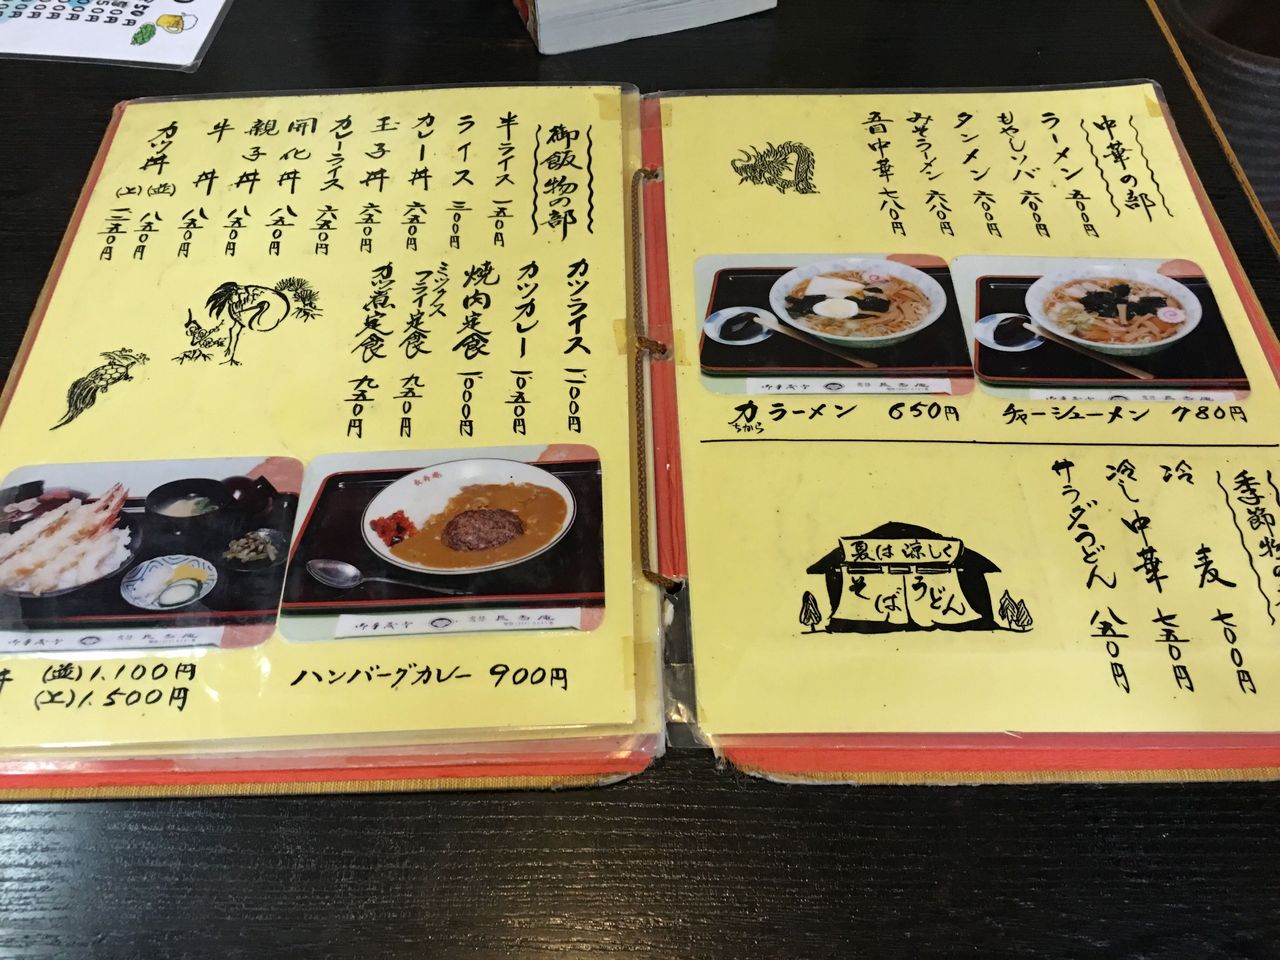 中華の部
ラーメン 五〇〇円
もやしソバ 六〇〇円
タンメン 六〇〇円
みそラーメン 六八〇円
五目中華 七八〇円
力ラーメン 650円
ちから
チャーシューメン 780円
季節物の
冷麦 七〇〇円
冷し中華 七五〇円
サラダうどん 八五〇円
夏は涼しく
そば うどん
御飯物の部
半ライス 一五〇円
ライス 三〇〇円
カレー丼 六五〇円
玉子丼 六五〇円
カレーライス 六五〇円
開化丼 八五〇円
親子丼 八五〇円
牛丼 八五〇円
カツ丼 (並) 八五〇円
(上) 一二五〇円
カツライス 一、一〇〇円
カツカレー 一〇五〇円
焼肉定食 一〇〇〇円
ミックスフライ定食 九五〇円
カツ煮定食 九五〇円
丼 (並) 1.100円
(上) 1.500円
ハンバーグカレー 900円